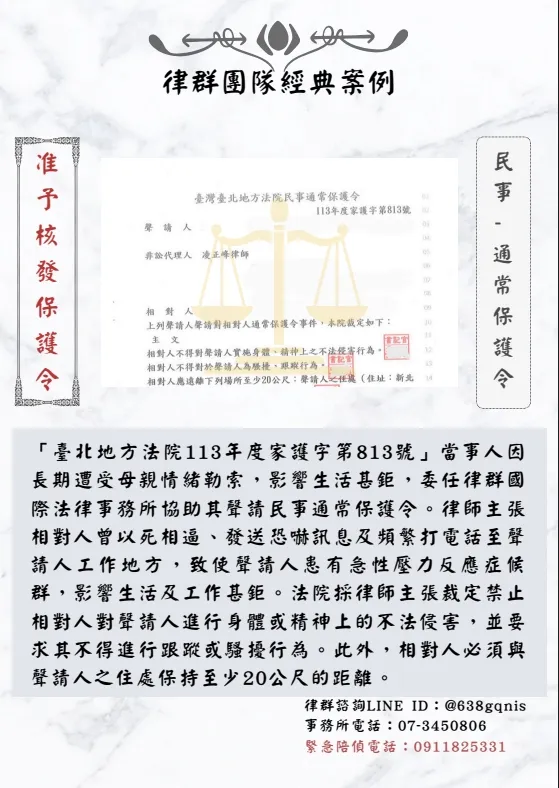 律群團隊經典案例
准予核發保護令
民事-通常保護令
臺灣臺北地方法院民事通常保護令
113年度家護字第813號
聲請人
非訟代理人 凌正峰律師
相對人
上列聲請人聲請對相對人通常保護令事件，本院裁定如下：
主文
相對人不得對聲請人實施身體、精神上之不法侵害行為。
相對人不得對於聲請人為騷擾、跟蹤行為。
相對人應遠離下列場所至少20公尺：聲請人之住處（住址：新北
書記官
書記官
「臺北地方法院113年度家護字第813號」當事人因
長期遭受母親情緒勒索，影響生活甚鉅，委任律群國
際法律事務所協助其聲請民事通常保護令。律師主張
相對人曾以死相逼、發送恐嚇訊息及頻繁打電話至聲
請人工作地方，致使聲請人患有急性壓力反應症候
群，影響生活及工作甚鉅。法院採律師主張裁定禁止
相對人對聲請人進行身體或精神上的不法侵害，並要
求其不得進行跟蹤或騷擾行為。此外，相對人必須與
聲請人之住處保持至少20公尺的距離。
律群諮詢LINE ID：@638gqnis
事務所電話：07-3450806
緊急陪偵電話：0911825331